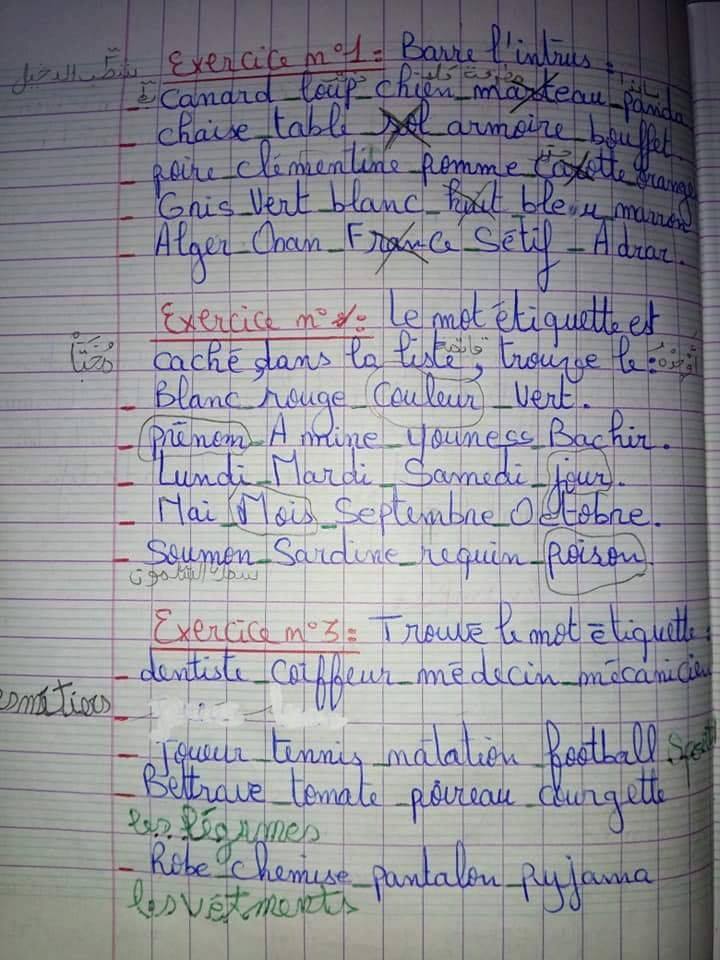 Exercice n°1: Barre l'intrus:
شطب الدخيل
canard_loup_chien_marteau_panda
chaise_table_sol_armoire_bouffet.
poire clémentine pomme carotte orange
Gris_Vert_blanc_huit_bleu_marron
Alger_Oran_France_Sétif_Adrar.
Exercice n°2: le mot étiquette est
caché dans la liste, trouve le:
Blanc_rouge_Couleur_Vert.
prénom_Amine_youness_Bachir.
Lundi_Mardi_Samedi_jour.
Mai_Mois_Septembre_Octobre.
Soumon_Sardine_requin_poison
Exercice n°3: Trouve le mot étiquette:
dentiste_coiffeur_médecin_mécanicien
joueur_tennis_matation_football Sport
Bettrave_tomate_poireau_courgette
les légumes
Robe_chemise_pantalon_pyjama
les vétments